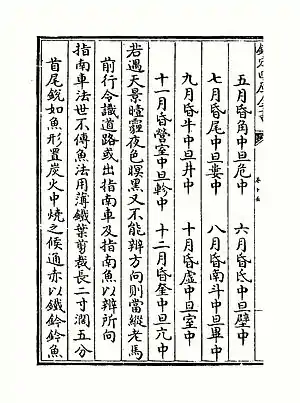 欽定四庫全書
卷十五
五月昏角中旦危中　六月昏氐中旦壁中
七月昏尾中旦婁中　八月昏南斗中旦畢中
九月昏牛中旦井中　十月昏虛中旦室中
十一月昏營室中旦軫中　十二月昏奎中旦亢中
若遇天景曀霾夜色暝黑又不能辨方向則當縱老馬
前行令識道路或出指南車及指南魚以辨所向
指南車法世不傳魚法用薄鐵葉剪裁長二寸濶五分
首尾銳如魚形置炭火中燒之候通赤以鐵鈐鈐魚